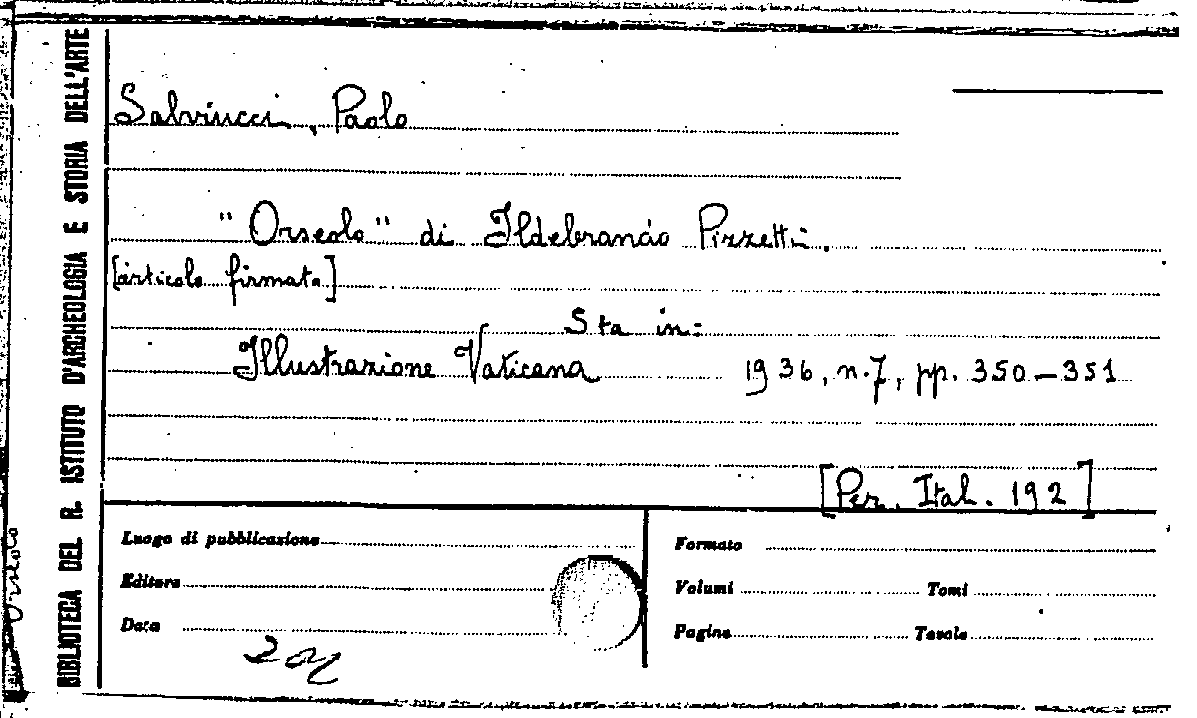 BIBLIOTECA DEL R. ISTITUTO D'ARCHEOLOGIA E STORIA DELL'ARTE
Salviucci, Paolo
"Orseolo" di Ildebrando Pizzetti.
[articolo firmato]
Sta in:
Illustrazione Vaticana 1936, n. 7, pp. 350-351
[Per. Ital. 192]
Luogo di pubblicazione
Editore
Data
Formato
Volumi Tomi
Pagine Tavole
Orseolo